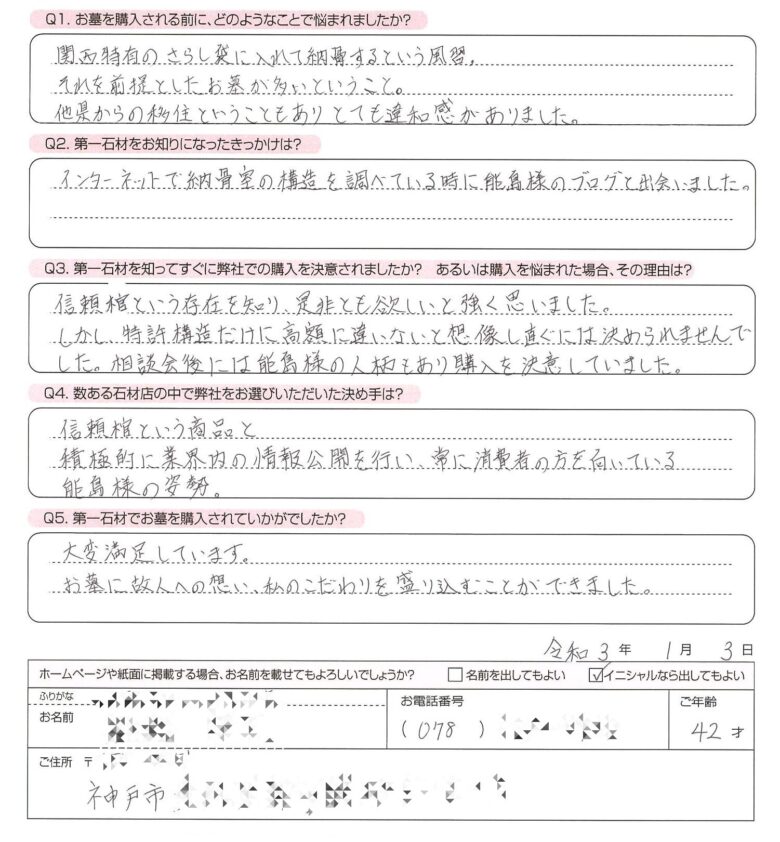 Q1. お墓を購入される前に、どのようなことで悩まれましたか?
関西特有のさらし袋に入れて納骨するという風習,
それを前提としたお墓が多いということ。
他県からの移住ということもありとても違和感がありました。
Q2. 第一石材をお知りになったきっかけは?
インターネットで納骨室の構造を調べている時に能島様のブログと出会いました。
Q3. 第一石材を知ってすぐに弊社での購入を決意されましたか? あるいは購入を悩まれた場合、その理由は?
信頼棺という存在を知り、是非とも欲しいと強く思いました。
しかし、特許構造だけに高額に違いないと想像し直ぐには決められませんで
した。相談会後には能島様の人柄もあり購入を決意していました。
Q4. 数ある石材店の中で弊社をお選びいただいた決め手は?
信頼棺という商品と
積極的に業界内の情報公開を行い、常に消費者の方を向いている
能島様の姿勢。
Q5. 第一石材でお墓を購入されていかがでしたか?
大変満足しています。
お墓に故人への想い、私のこだわりを盛り込むことができました。
令和 3 年 1 月 3 日
ホームページや紙面に掲載する場合、お名前を載せてもよろしいでしょうか? 名前を出してもよい イニシャルなら出してもよい
ふりがな
お名前
お電話番号
(078)
ご年齢
42 才
ご住所 〒
神戸市